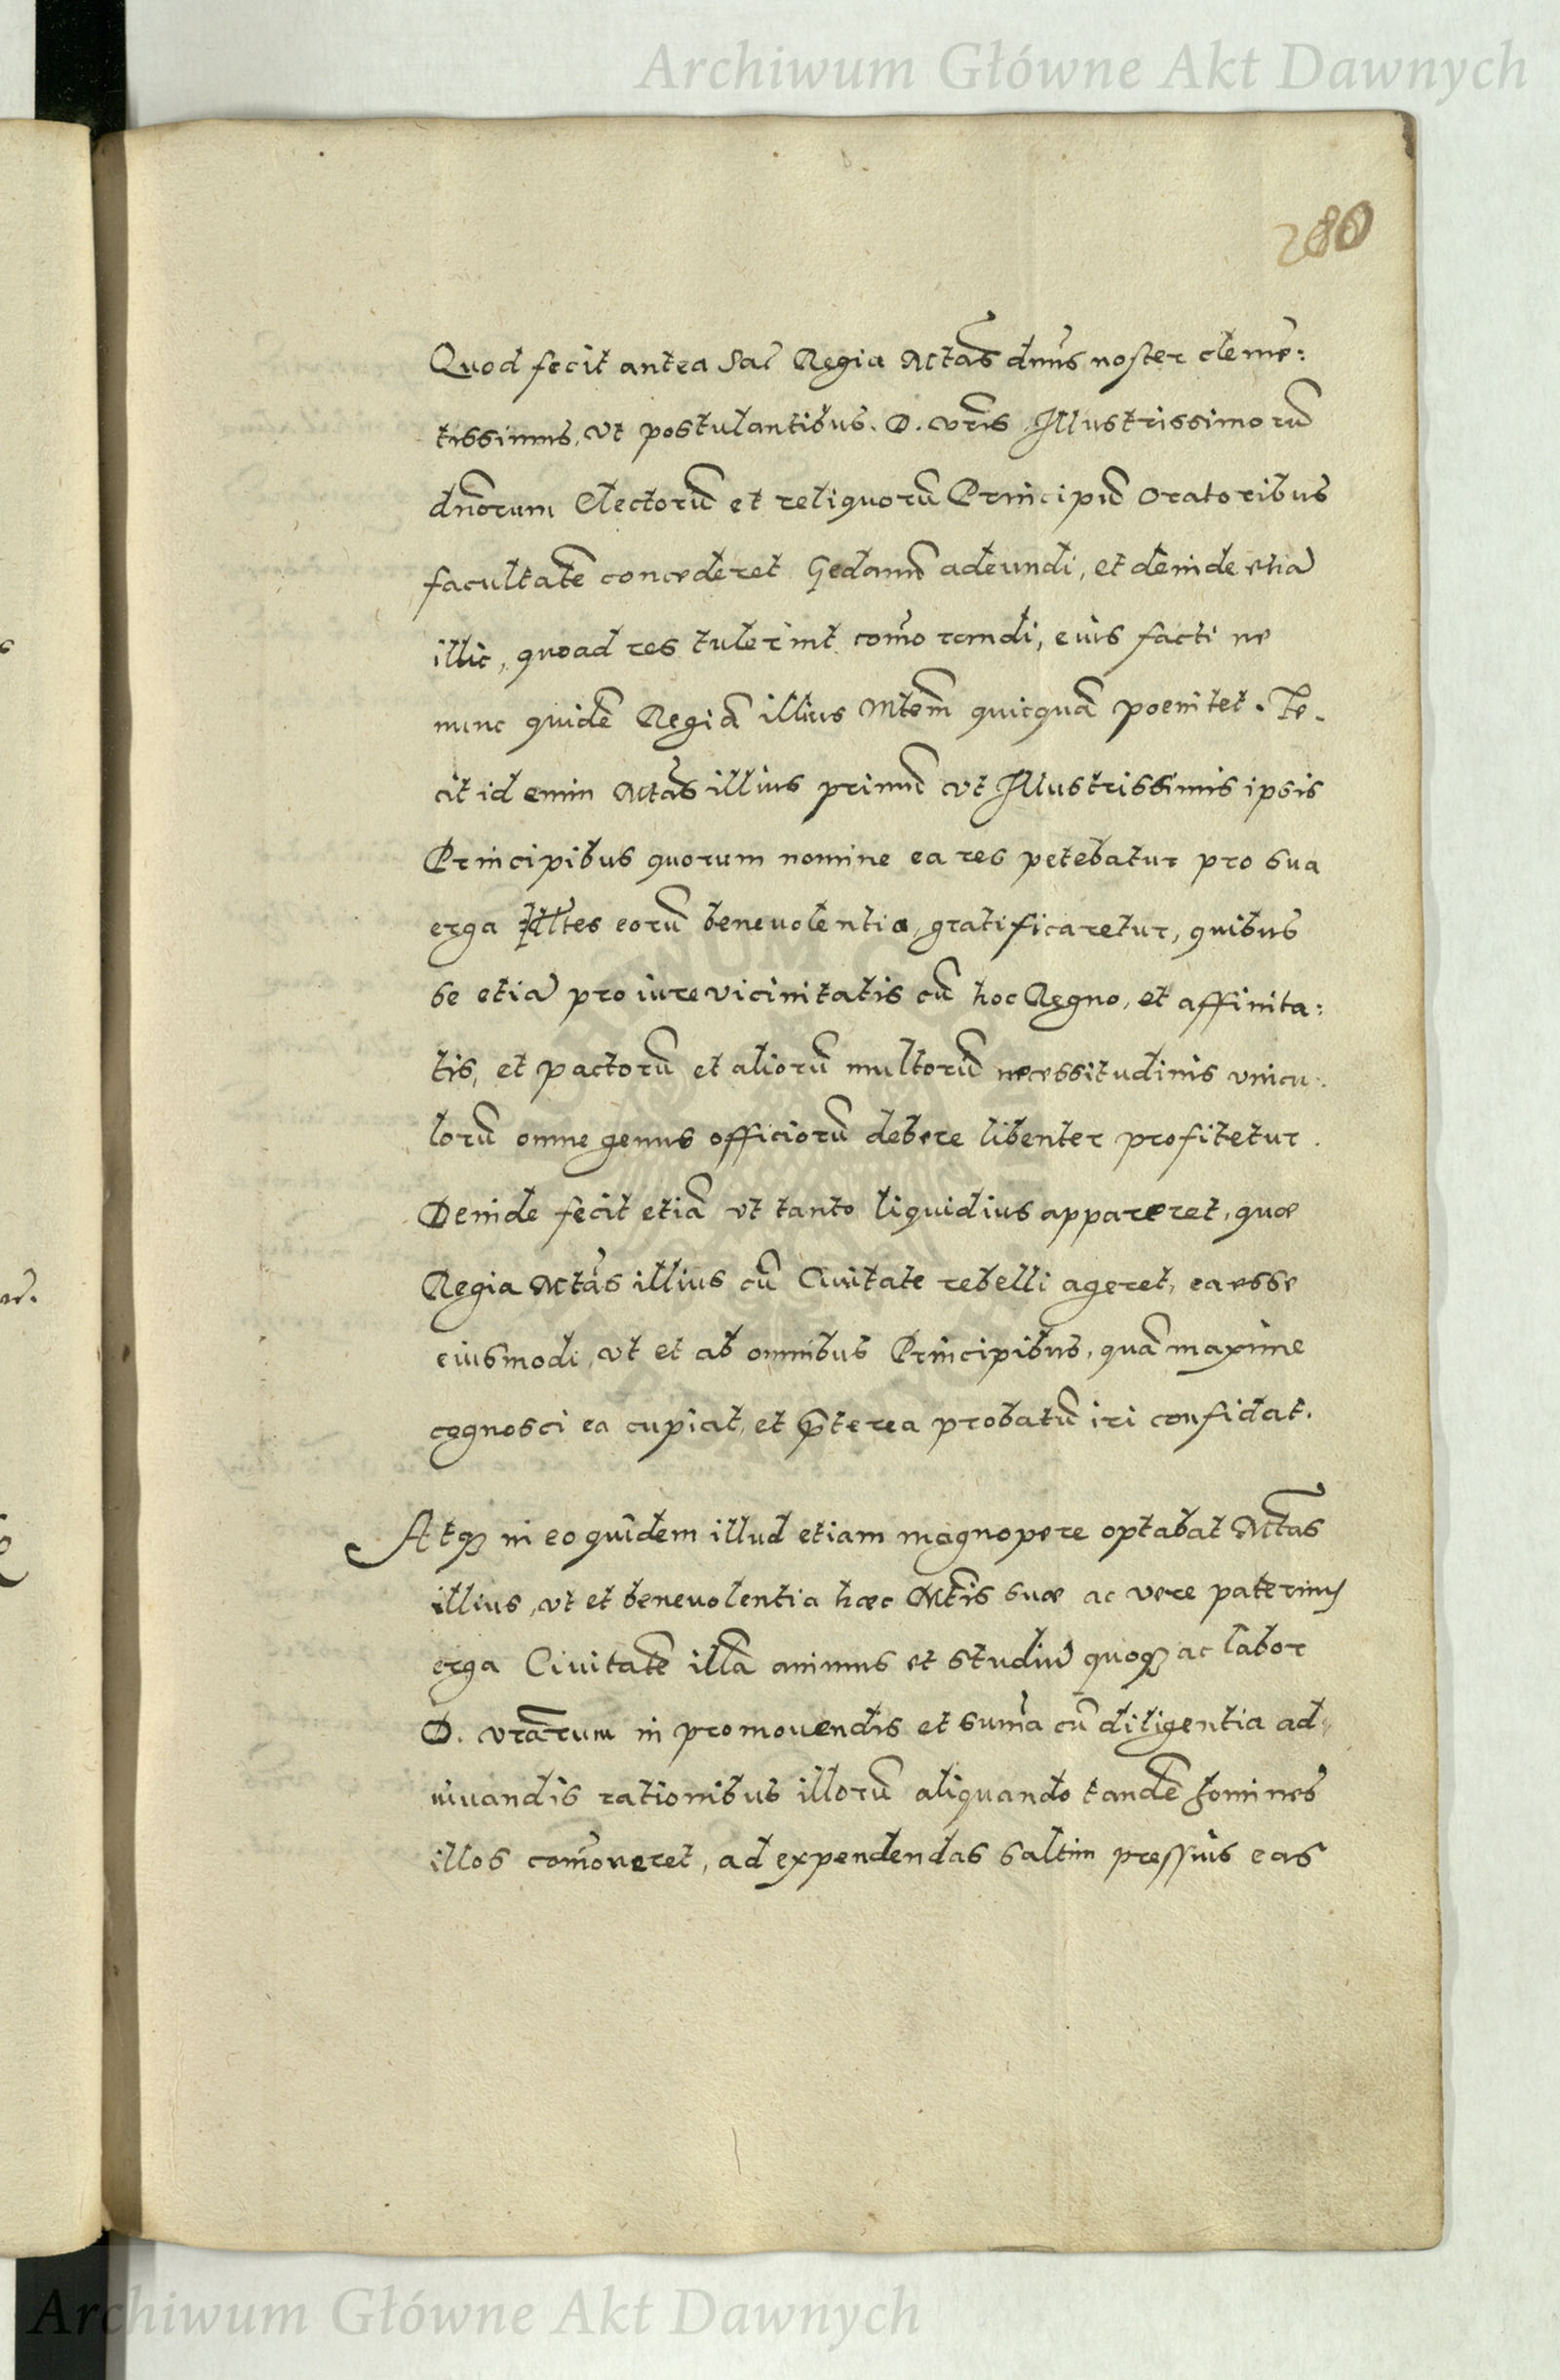 Archiwum Główne Akt Dawnych
Quod fecit antea Sac Regia Mtas dnus noster cleme:
tissimus, ut postulantibus. D. vris Illustrissimorū
dnorum Electorū et reliquorū Principū oratoribus
facultatē concederet Gedanū adeundi, et deinde etiā
illic, quoad res tulerint comorandi, eius facti ne
nunc quidē Regiā illius Mtem quicquā poenitet. Fe.
cit id enim Mtas illius primū ut Illustrissimis ipsis
Principibus quorum nomine ea res petebatur pro sua
erga Illtes eorū benevolentia, gratificaretur, quibus
se etiā pro iure vicinitatis cū hoc Regno, et affinita:
tis, et pactorū et aliorū multorū necessitudinis vincu:
lorū omne genus officiorū debere libenter profitetur.
Deinde fecit etiā ut tanto liquidius appareret, quæ
Regia Mtas illius cū Civitate rebelli ageret, ea esse
eiusmodi, ut et ab omnibus Principibus, quā maxime
cognosci ea cupiat, et p̄terea probatū iri confidat.
Atq̨ in eo quidem illud etiam magnopere optabat Mtas
illius, ut et benevolentia hæc Mtis suæ ac vere paternus
erga Civitatē illā animus et studiū quoq̨ ac labor
D. vrarum in promovendis et suma cū diligentia ad-
iuvandis rationibus illorū aliquando tandē homines
illos comoveret, ad expendendas saltim pressius eas
Archiwum Główne Akt Dawnych